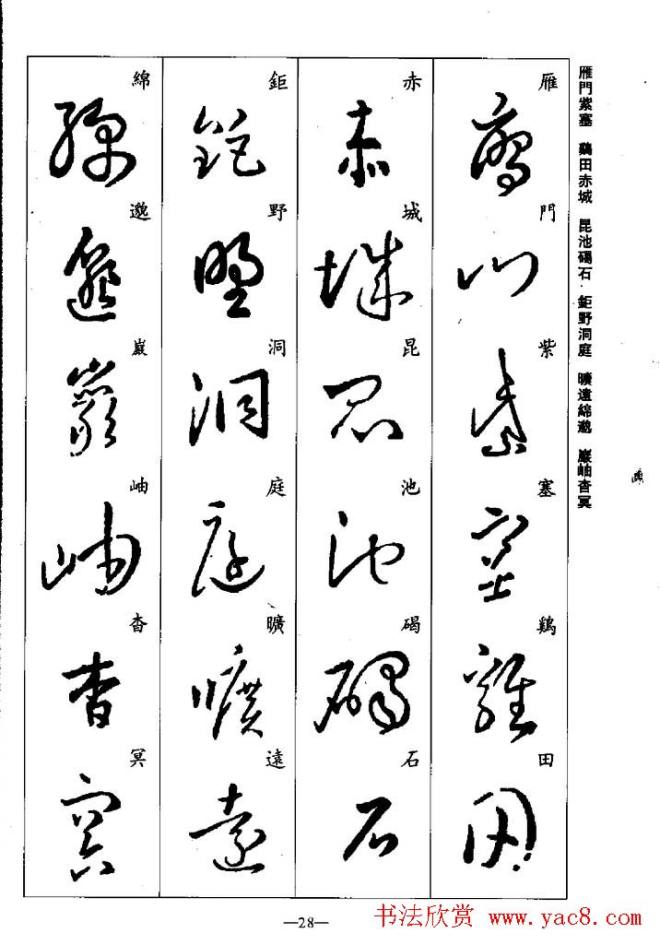 雁門紫塞 鷄田赤城 昆池碣石 鉅野洞庭 曠遠綿邈 巖岫杳冥
雁門紫塞鷄田
赤城昆池碣石
鉅野洞庭曠遠
綿邈巖岫杳冥
—28—
书法欣赏 www.yac8.com